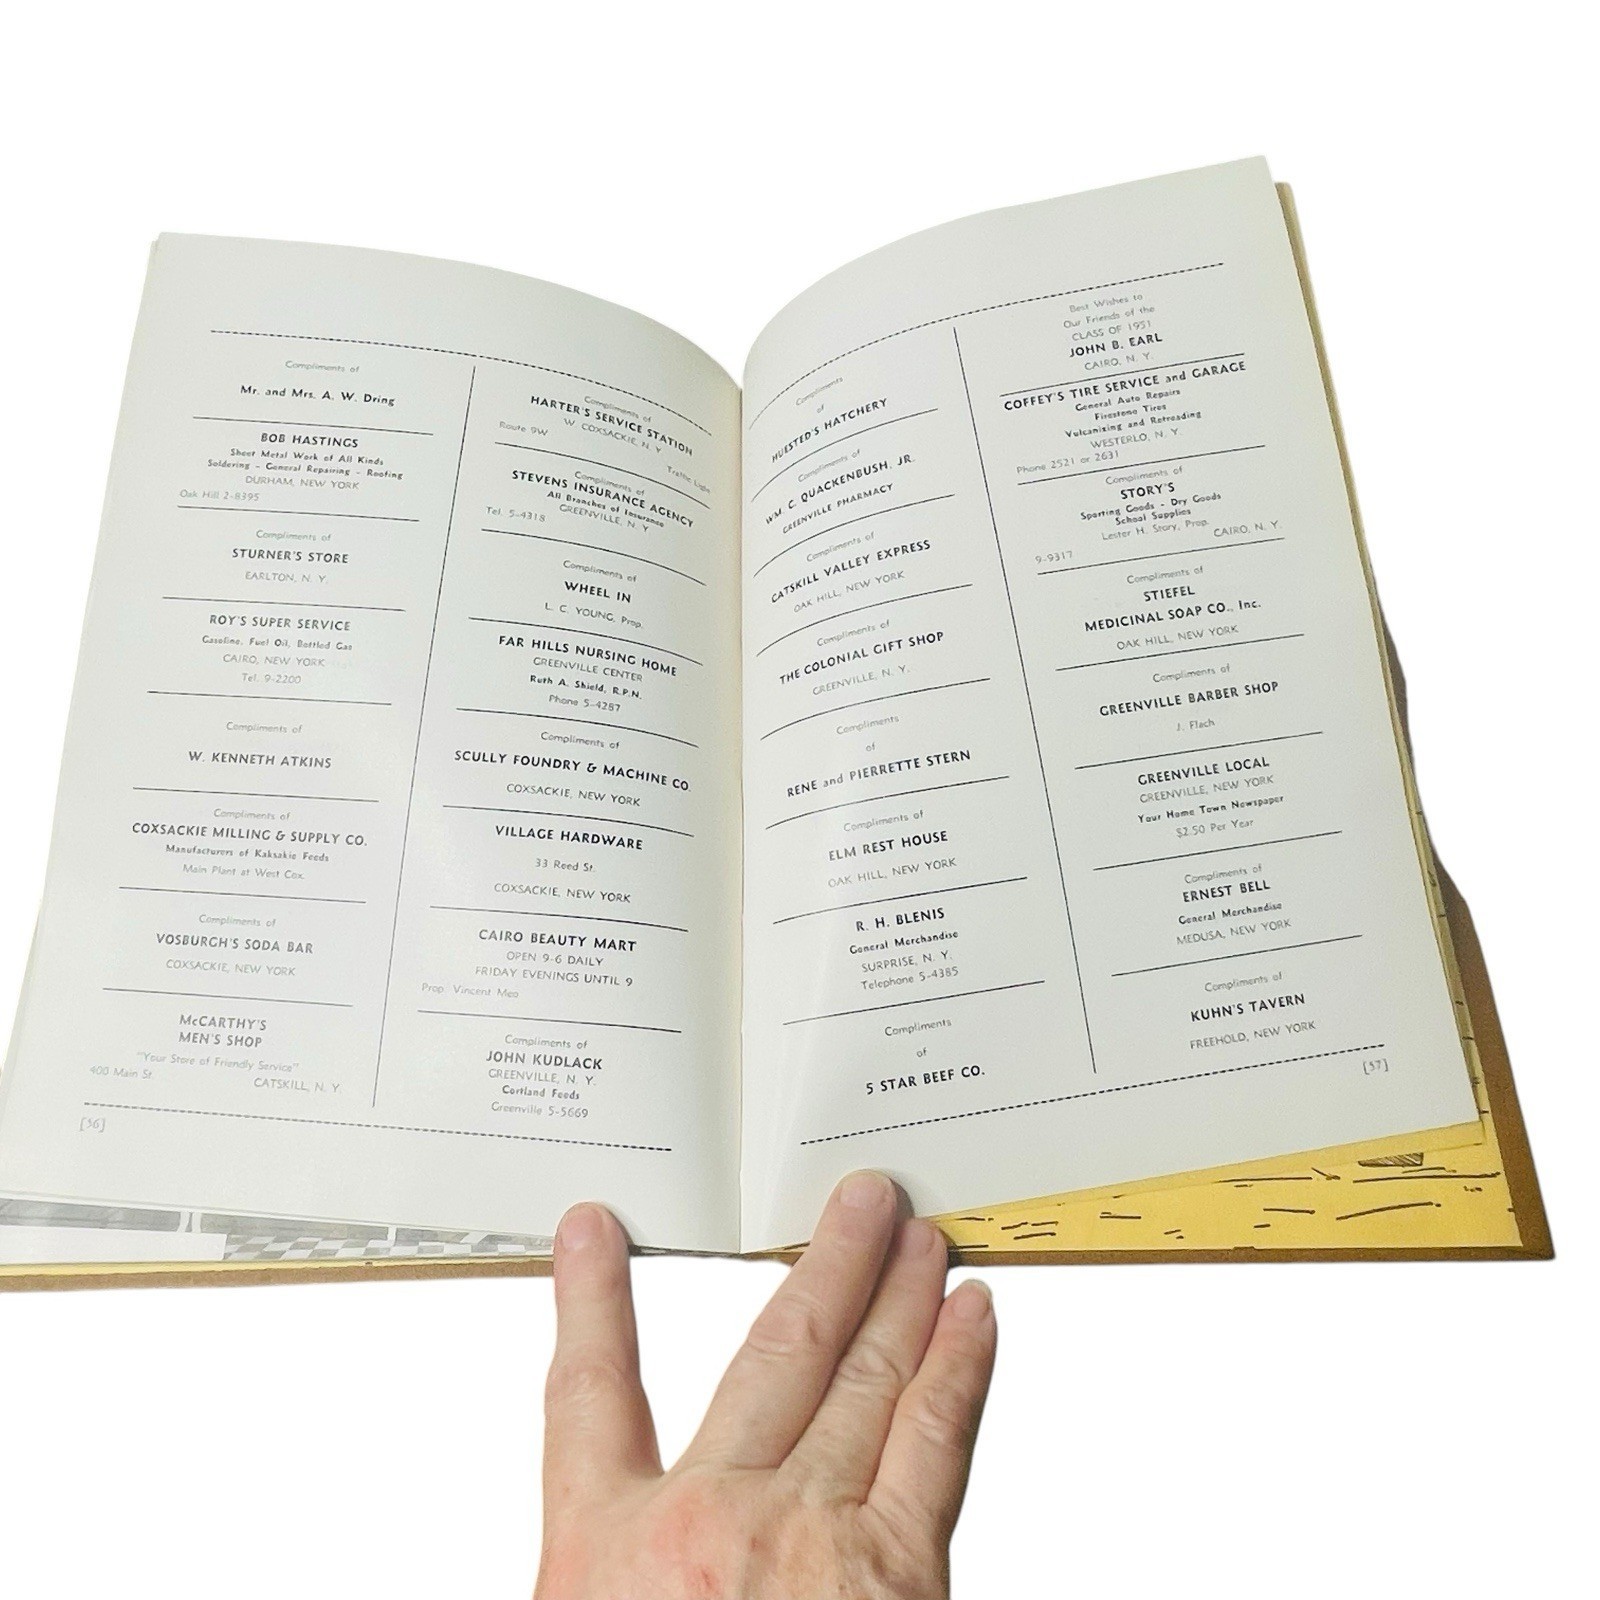 Compliments of
Mr. and Mrs. A. W. Dring
BOB HASTINGS
Sheet Metal Work of All Kinds
Soldering - General Repairing - Roofing
DURHAM, NEW YORK
Oak Hill 2-8395
Compliments of
STURNER'S STORE
EARLTON, N. Y.
ROY'S SUPER SERVICE
Gasoline, Fuel Oil, Bottled Gas
CAIRO, NEW YORK
Tel. 9-2200
Compliments of
W. KENNETH ATKINS
Compliments of
COXSACKIE MILLING & SUPPLY CO.
Manufacturers of Kaksakie Feeds
Main Plant at West Cox.
Compliments of
VOSBURGH'S SODA BAR
COXSACKIE, NEW YORK
McCARTHY'S
MEN'S SHOP
"Your Store of Friendly Service"
400 Main St. CATSKILL, N. Y.
[56]
Compliments of
HARTER'S SERVICE STATION
W. COXSACKIE, N. Y.
Route 9W Traffic Light
Compliments of
STEVENS INSURANCE AGENCY
All Branches of Insurance
GREENVILLE, N. Y.
Tel. 5-4318
Compliments of
WHEEL IN
L. C. YOUNG, Prop.
FAR HILLS NURSING HOME
GREENVILLE CENTER
Ruth A. Shield, R.P.N.
Phone 5-4287
Compliments of
SCULLY FOUNDRY & MACHINE CO.
COXSACKIE, NEW YORK
VILLAGE HARDWARE
33 Reed St.
COXSACKIE, NEW YORK
CAIRO BEAUTY MART
OPEN 9-6 DAILY
FRIDAY EVENINGS UNTIL 9
Prop. Vincent Meo
Compliments of
JOHN KUDLACK
GREENVILLE, N. Y.
Cortland Feeds
Greenville 5-5669
Compliments
of
HUESTED'S HATCHERY
Compliments of
WM. C. QUACKENBUSH, JR.
GREENVILLE PHARMACY
Compliments of
CATSKILL VALLEY EXPRESS
OAK HILL, NEW YORK
Compliments of
THE COLONIAL GIFT SHOP
GREENVILLE, N. Y.
Compliments
of
RENE and PIERRETTE STERN
Compliments of
ELM REST HOUSE
OAK HILL, NEW YORK
R. H. BLENIS
General Merchandise
SURPRISE, N. Y.
Telephone 5-4385
Compliments
of
5 STAR BEEF CO.
Best Wishes to
Our Friends of the
CLASS OF 1951
JOHN B. EARL
CAIRO, N. Y.
COFFEY'S TIRE SERVICE and GARAGE
General Auto Repairs
Firestone Tires
Vulcanizing and Retreading
WESTERLO, N. Y.
Phone 2521 or 2631
Compliments of
STORY'S
Sporting Goods - Dry Goods
School Supplies
Lester H. Story, Prop.
9-9317 CAIRO, N. Y.
Compliments of
STIEFEL
MEDICINAL SOAP CO., Inc.
OAK HILL, NEW YORK
Compliments of
GREENVILLE BARBER SHOP
J. Flach
GREENVILLE LOCAL
GREENVILLE, NEW YORK
Your Home Town Newspaper
$2.50 Per Year
Compliments of
ERNEST BELL
General Merchandise
MEDUSA, NEW YORK
Compliments of
KUHN'S TAVERN
FREEHOLD, NEW YORK
[57]